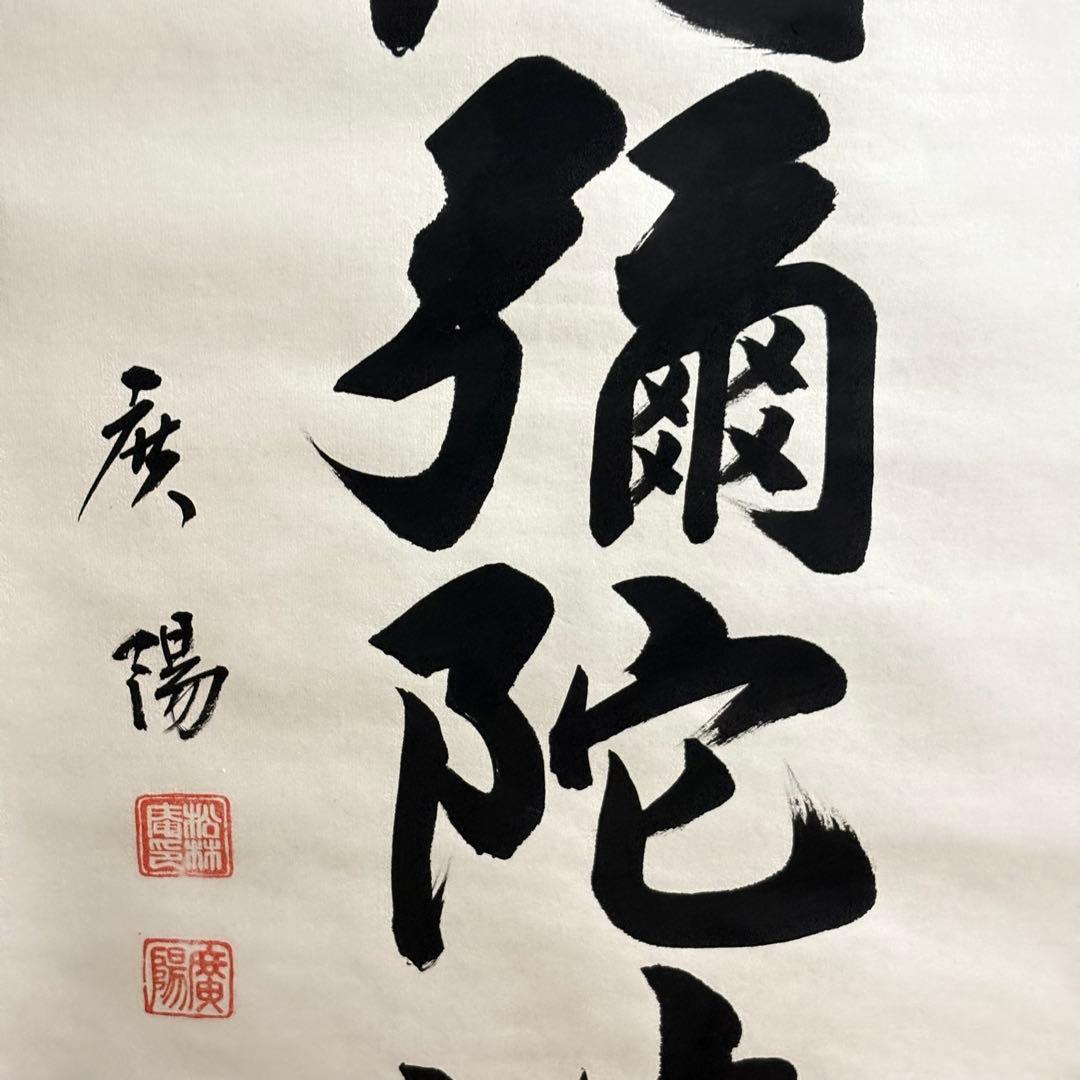 彌陀
廣陽
松林庵印
廣陽